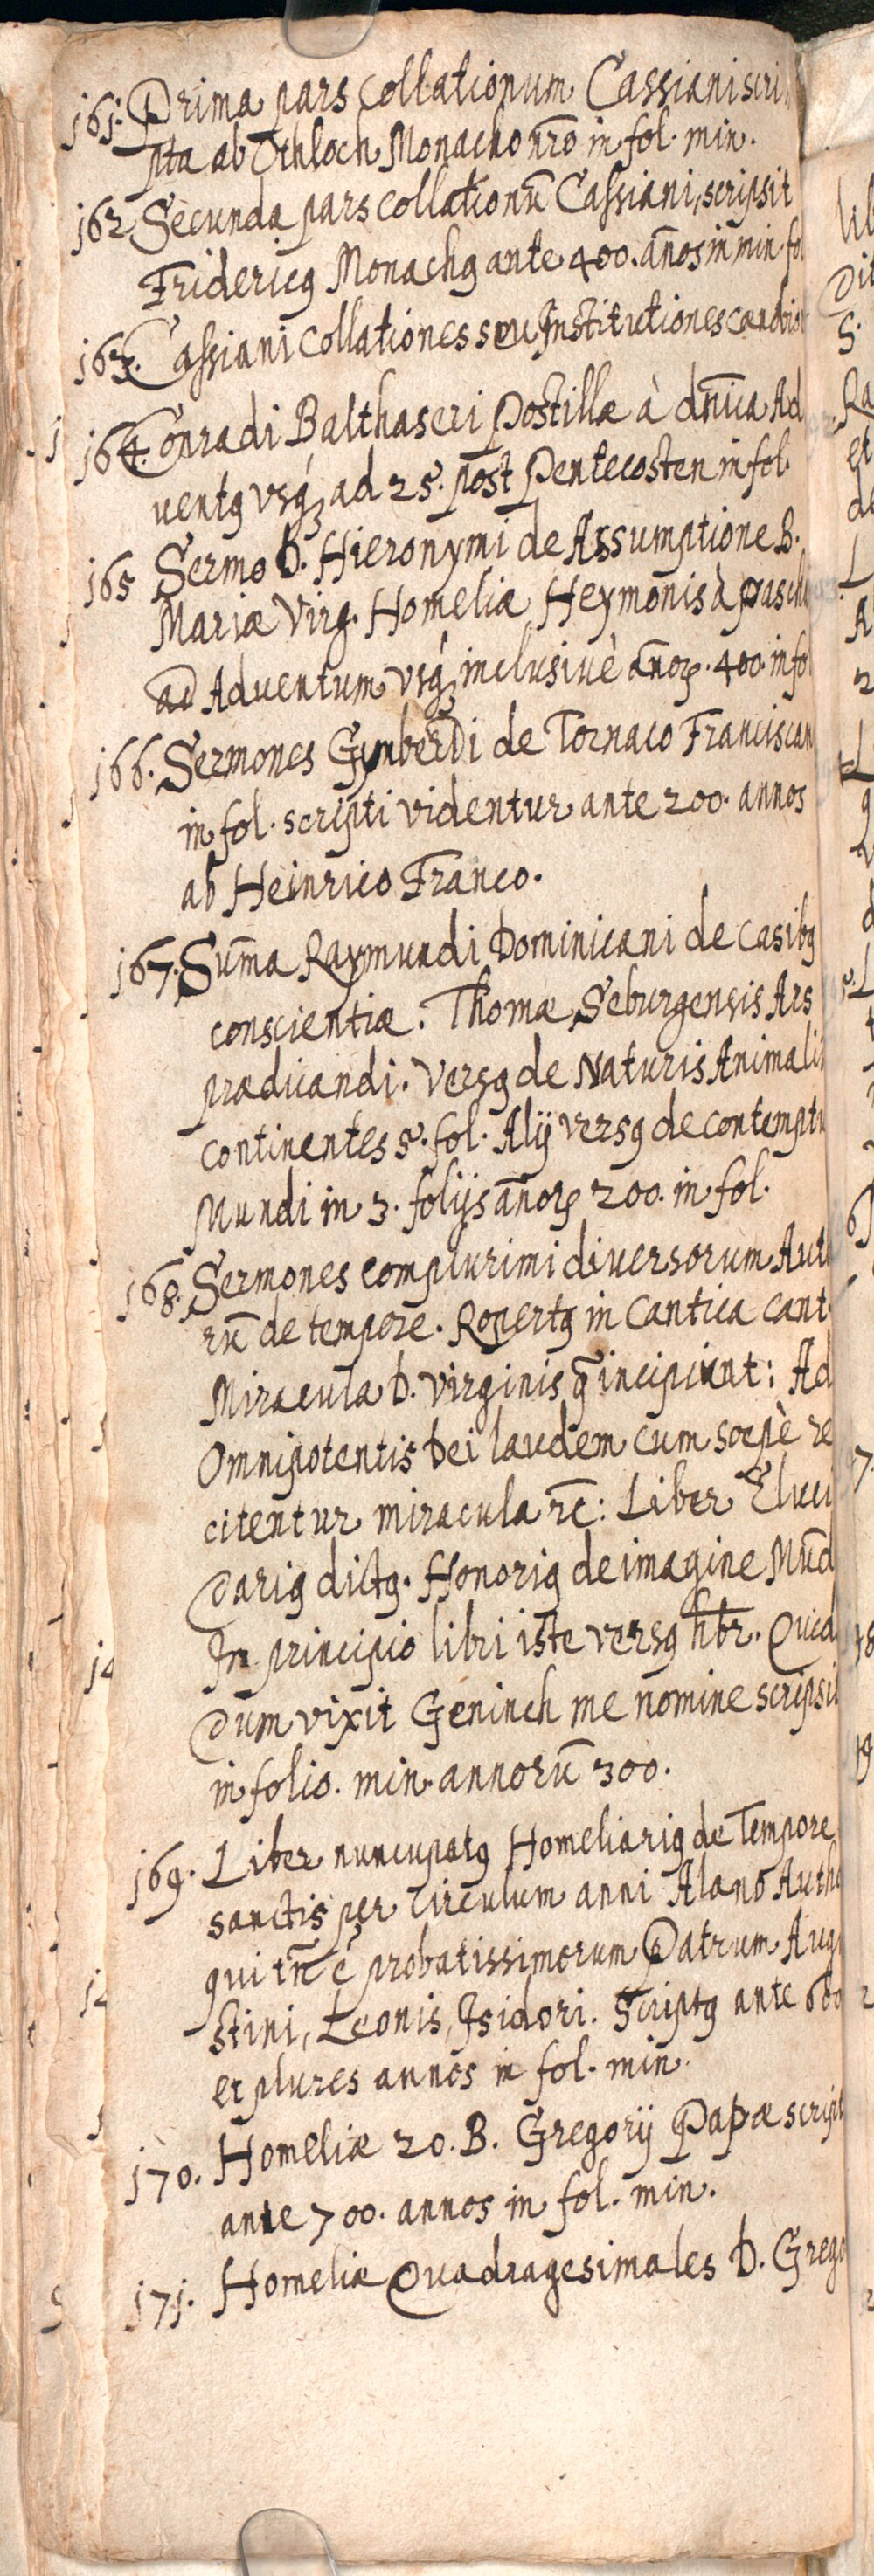 161. Prima pars Collationum Cassiani scri
pta ab Othloch Monacho nr̄o in fol. min.
162 Secunda pars collationū Cassiani, scripsit
Fridericꝰ Monachꝰ ante 400. an̄os in min. fo
163. Cassiani Collationes seu Institutiones
164. Conradi Baltheseri Postillæ à dn̄ica Ad
uentꝰ vsq́ꝫ ad 25. post Pentecosten in fol.
165 Sermo D. Hieronymi de Assumptione B.
Mariæ Virg. Homeliæ Heymonis à pasch
ad Aduentum vsq́ꝫ inclusiuè an̄oꝝ. 400. in fo
166. Sermones Gymberdi de Tornaco Franciscan
in fol. scripti videntur ante 200. annos
ab Heinrico Franco.
167. Sum̄a Raymundi Dominicani de casibꝰ
conscientiæ. Thomæ Seburgensis Ars
prædicandi. Versꝰ de Naturis Animaliū
continentes 5. fol. Alij versꝰ de contemptu
Mundi in 3. folijs an̄oꝝ 200. in fol.
168. Sermones complurimi diversorum Auto
rū de tempore. Ropertꝰ in Cantica cant.
Miracula D. Virginis q̄ incipiunt: Ad
Omnipotentis Dei laudem cum sæpè re
citentur miracula ꝛc̄: Liber Eluci
dariꝰ dictꝰ. Honoriꝰ de imagine Mūd
In principio libri iste versꝰ hr̄. Quid
dum vixit Geninch me nomine scripsit
in folio. min. annorū 300.
169. Liber nuncupatꝰ Homeliariꝰ de Tempore
sanctis per Circulum anni Alano Autho
qui tn̄ ē probatissimorum Patrum Augu
stini, Leonis, Isidori. Scriptꝰ ante 600
et plures annos in fol. min.
170. Homeliæ 20. B. Gregorij Papæ script
ante 700. annos in fol. min.
171. Homeliæ Quadragesimales D. Grego